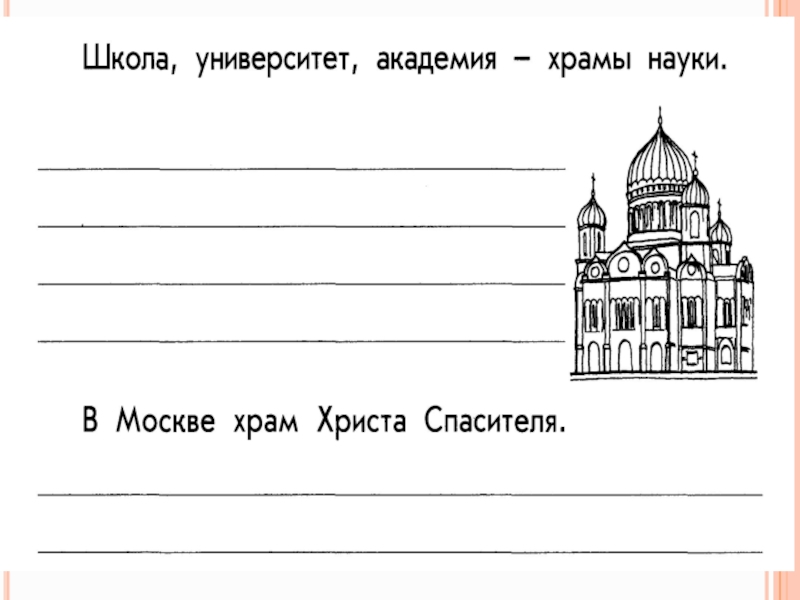 Школа, университет, академия – храмы науки.
В Москве храм Христа Спасителя.